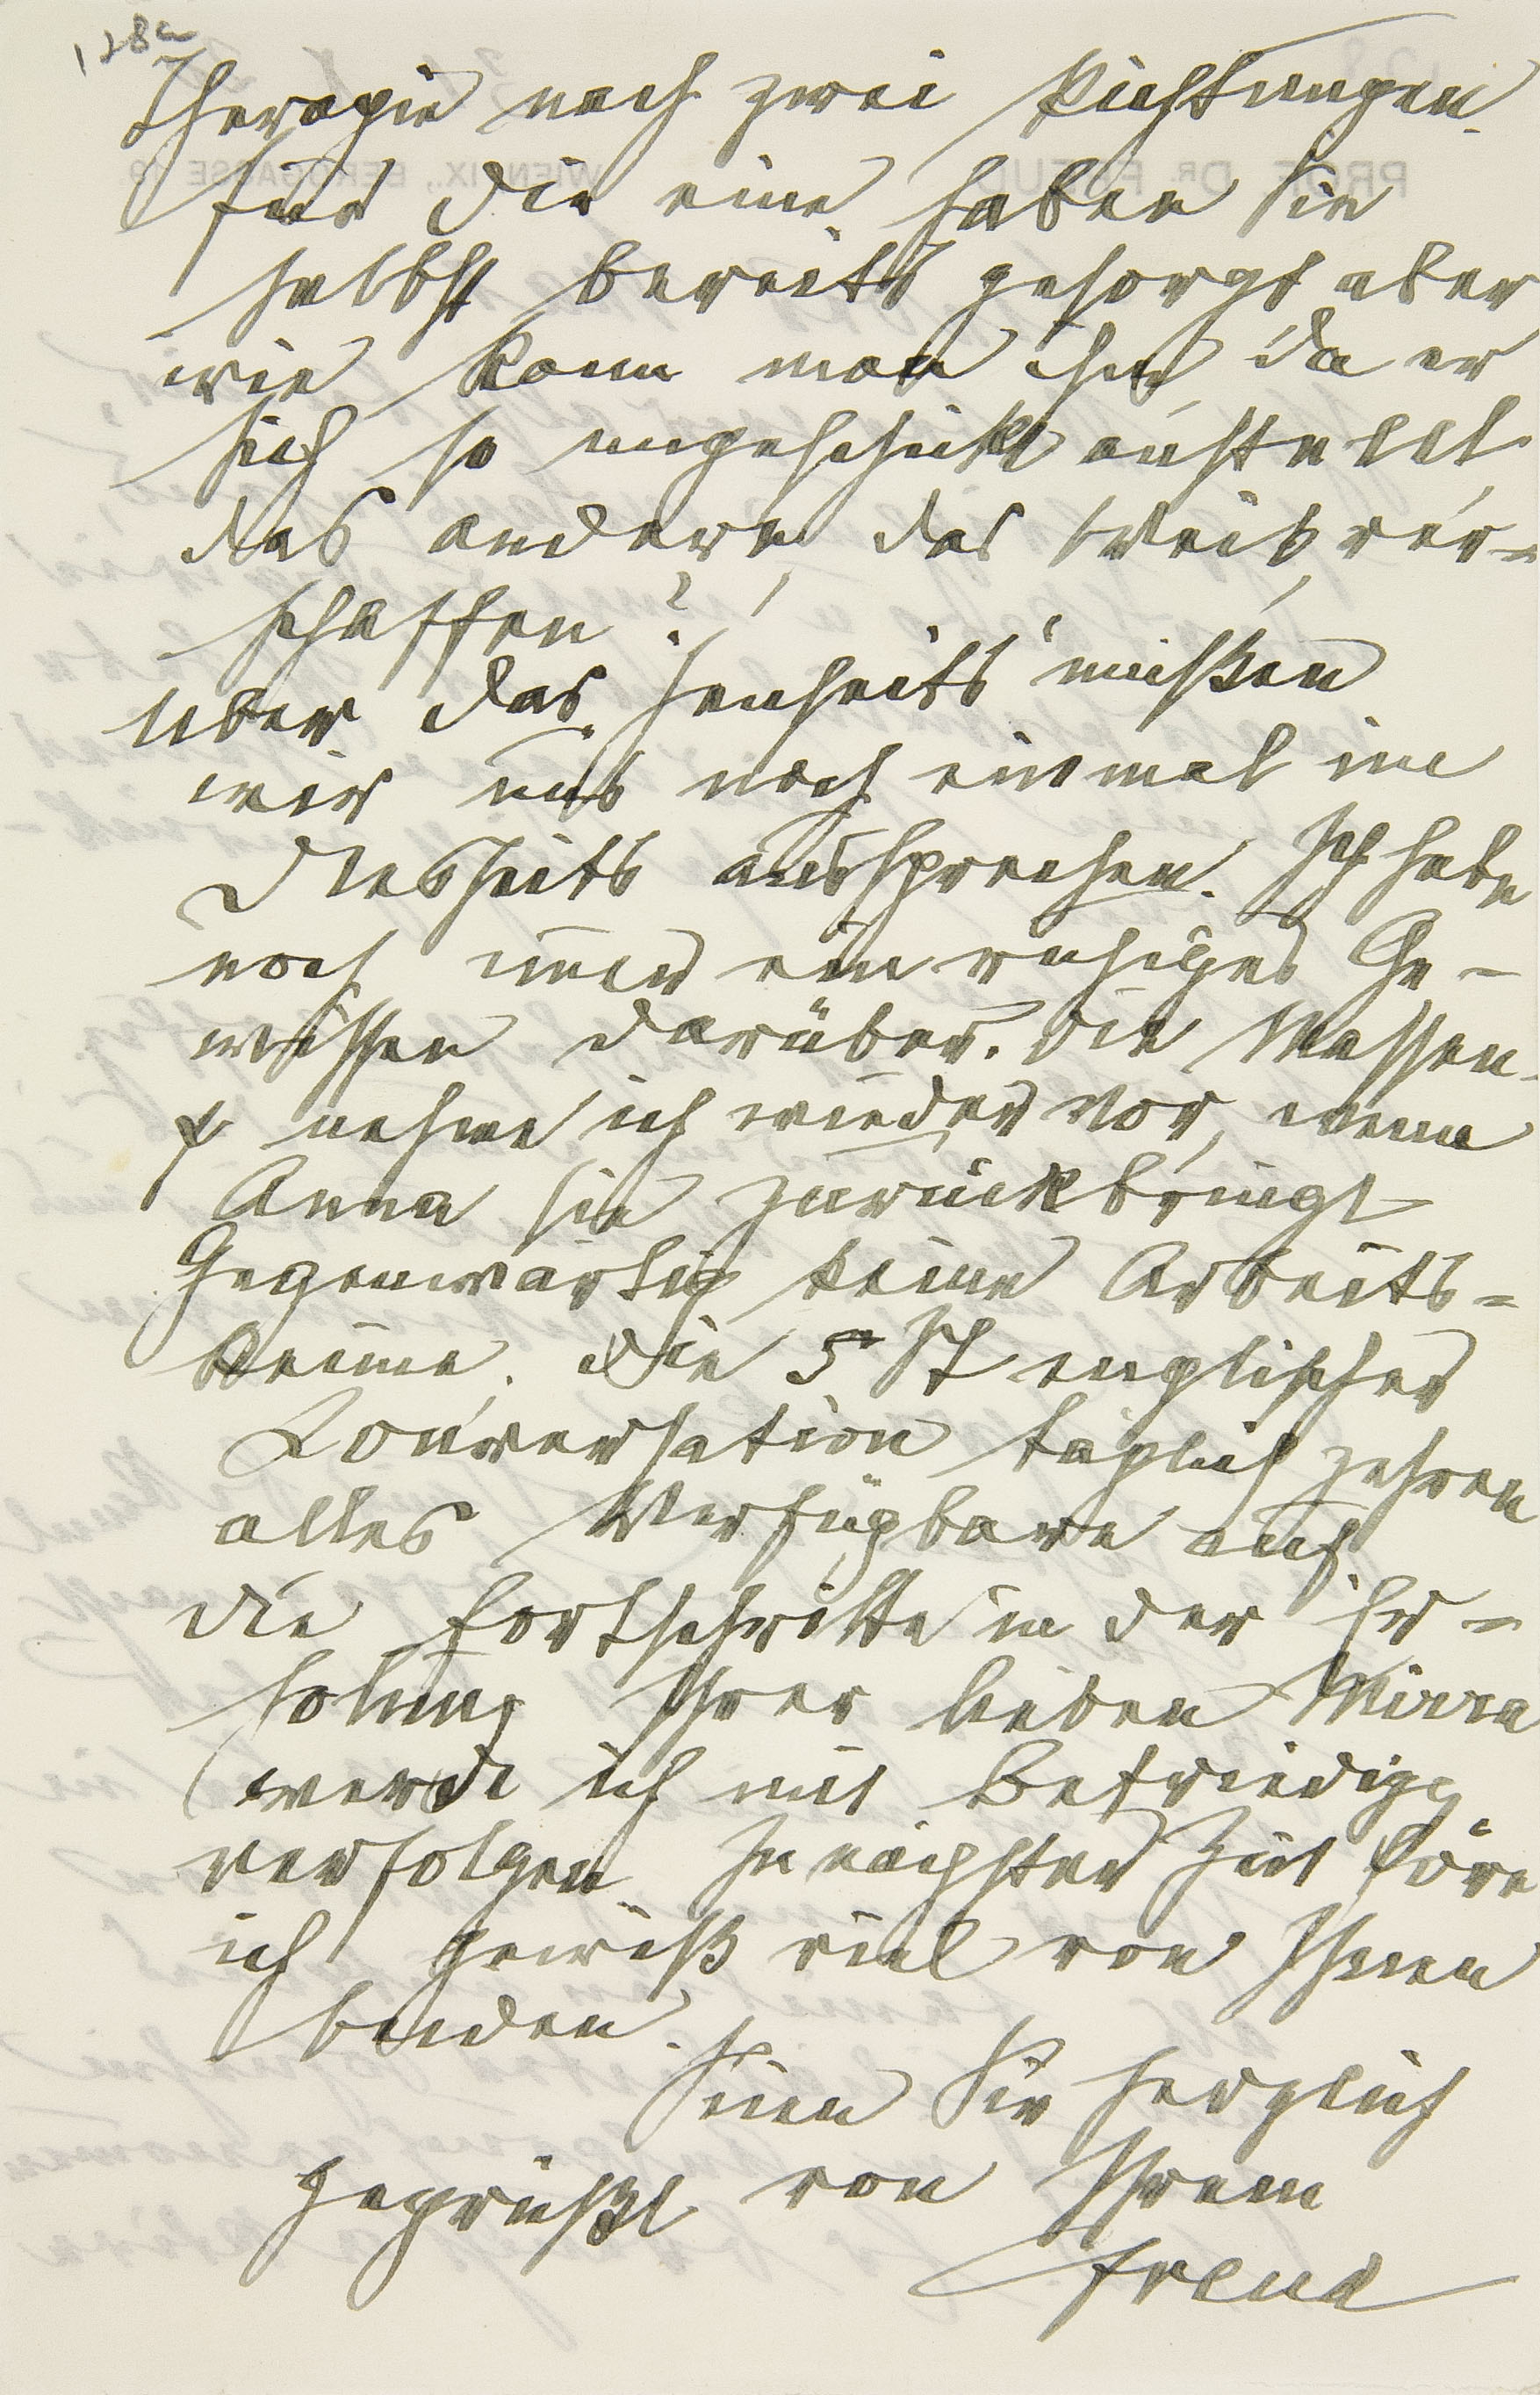 128a
Therapie nach zwei Richtungen.
Für die eine haben Sie
selbst bereits gesorgt aber
wie kann man ihm, da er
sich so ungeschickt anstellt,
das andere, das Weib, ver-
schaffen?
Über das „Jenseits“ müßen
wir uns noch einmal im
Diesseits aussprechen. Ich habe
noch immer ein ruhiges Ge-
wissen darüber. Die Massen-
ψ nehme ich wieder vor, wenn
Anna sie zurückbringt
Gegenwärtig keine Arbeits-
keime. Die 5 St englischer
Conversation täglich zehren
alles Verfügbare auf.
Die Fortschritte in der Er-
holung Ihrer lieben Mirra
werde ich mit Befriedigg
verfolgen. In nächster Zeit höre
ich gewiß viel von Ihnen
beiden.
Seien Sie herzlich
gegrüßt von Ihrem
Freud
PROF. DR. FREUD
WIEN, IX., BERGGASSE 19